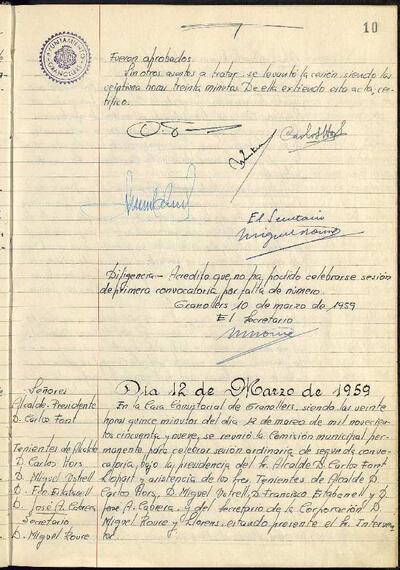 10
AYUNTAMIENTO
Fueron aprobados.
Sin otros asuntos a tratar, se levantó la sesión, siendo las
veintiuna horas treinta minutos. De ella extiendo esta acta; cer-
tifico.
El Secretario
Diligencia.- Acredito que no ha podido celebrarse sesión
de primera convocatoria por falta de número.
Granollers 10 de marzo de 1959
El Secretario
Señores
Alcalde-Presidente
D. Carlos Font
Tenientes de Alcalde
D. Carlos Hors
D. Miguel Votrell
D. Fco. Estabanell
D. José A. Cabrera
Secretario
D. Miguel Roure
Dia 12 de Marzo de 1959
En la Casa Consistorial de Granollers, siendo las veinte
horas quince minutos del dia 12 de marzo de mil novecien-
tos cincuenta y nueve, se reunió la Comisión municipal per-
manente para celebrar sesión ordinaria de segunda convo-
catoria, bajo la presidencia del Sr. Alcalde D. Carlos Font
Llopart y asistencia de los Sres. Tenientes de Alcalde D.
Carlos Hors, D. Miguel Votrell, D. Francisco Estabanell y D.
José A. Cabrera, y del Secretario de la Corporación D.
Miguel Roure y Llorens, estando presente el Sr. Interven-
tor.